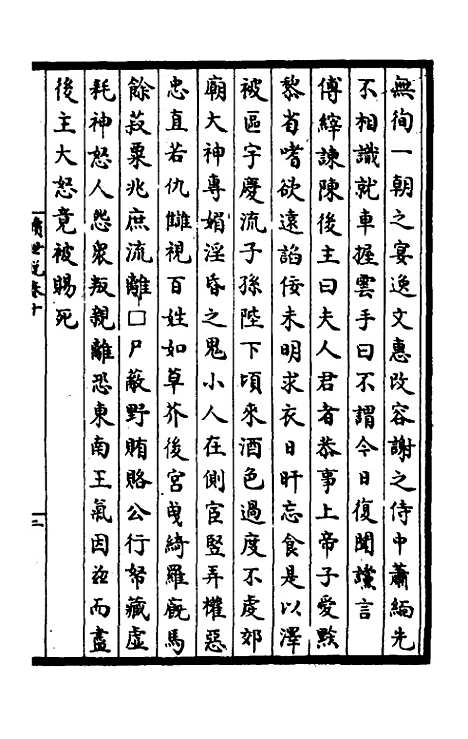 無徇一朝之宴逸文惠改容謝之侍中蕭緬先
不相識就車握雲手曰不謂今日復聞讜言
傅縡諫陳後主曰夫人君者恭事上帝子愛黔
黎省嗜欲遠諂佞未明求衣日旰忘食是以澤
被區宇慶流子孫陛下頃來酒色過度不虔郊
廟大神專媚淫昏之鬼小人在側宦豎弄權惡
忠直若仇讎視百姓如草芥後宮曳綺羅廐馬
餘菽粟兆庶流離□尸蔽野賄賂公行帑藏虛
耗神怒人怨衆叛親離恐東南王氣因兹而盡
後主大怒竟被賜死
續世說卷十
三